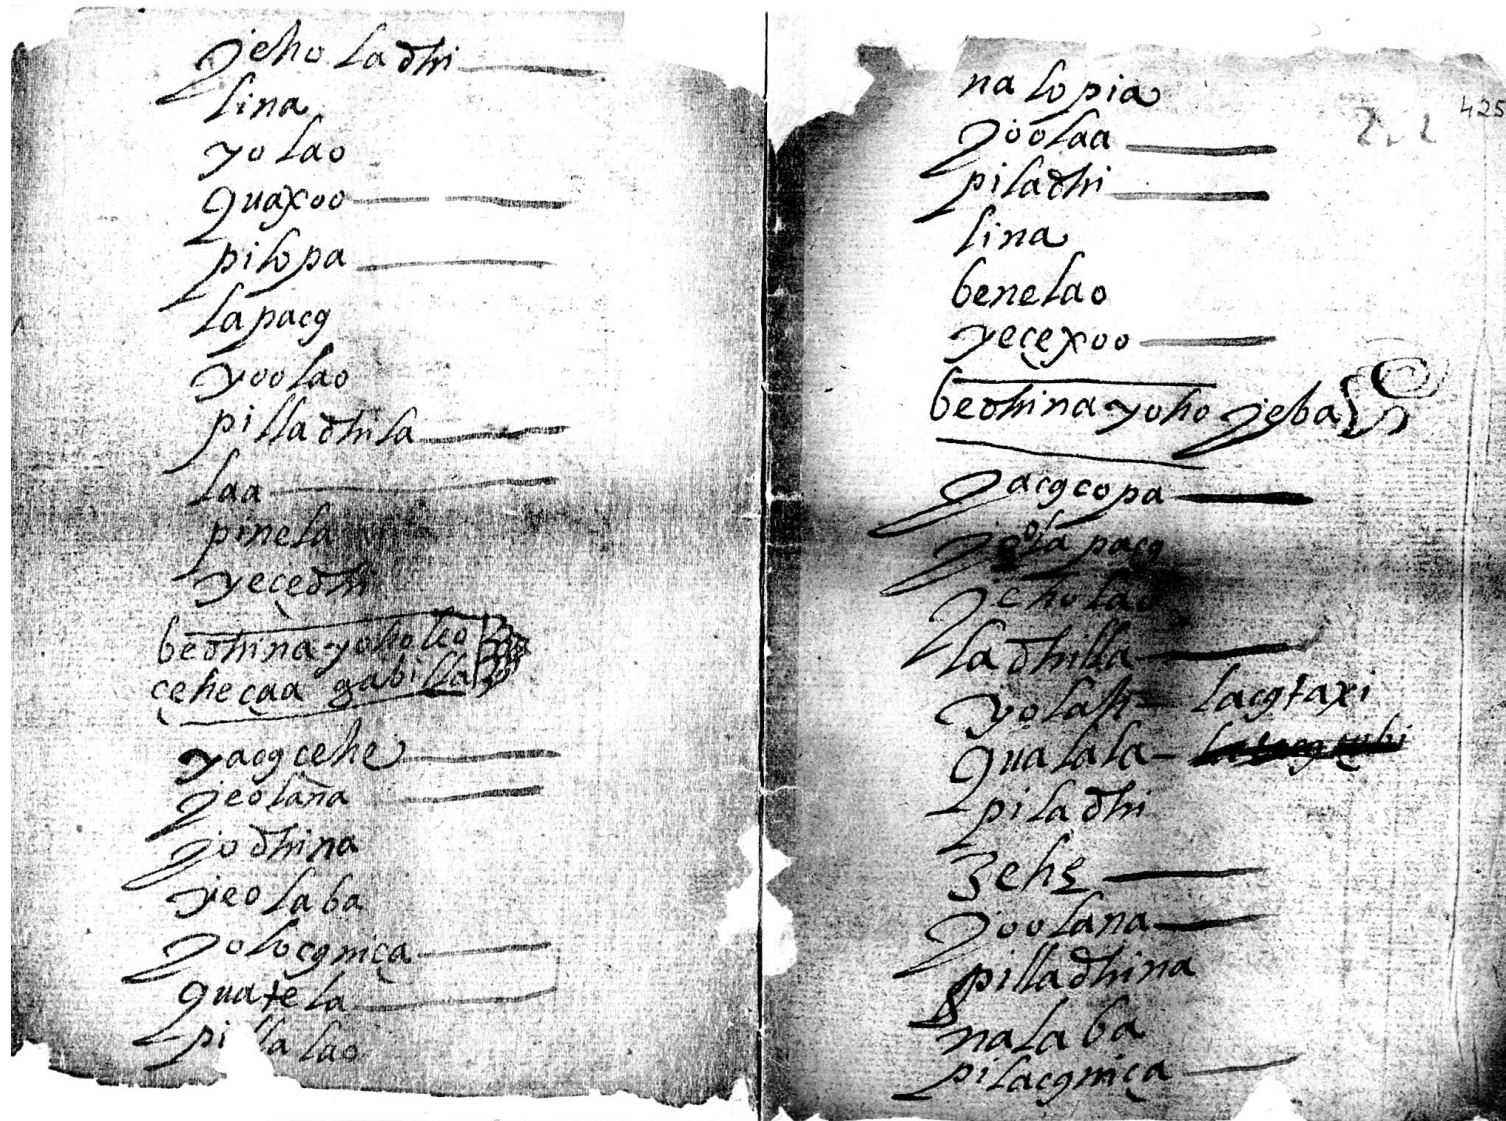 jeho ladhi
lina
yo lao
quaxoo
pilopa
lapacg
yoolao
pilladhila
laa
pinela
yeçedhi
bedhina yoho leo
çeheçaa gabilla
yacgcehe
jeolana
jodhina
yeolaba
yolocgniça
quatela
pilla lao
425
nalopia
yoolaa
piladhi
lina
benelao
yeçexoo
bedhina yoho jeba
yacgcopa
yoolapacg
jeholao
ladhilla
yolah lacgtaxi
qualala
piladhi
zehe
yoolana
pilladhina
nalaba
pilacgniça